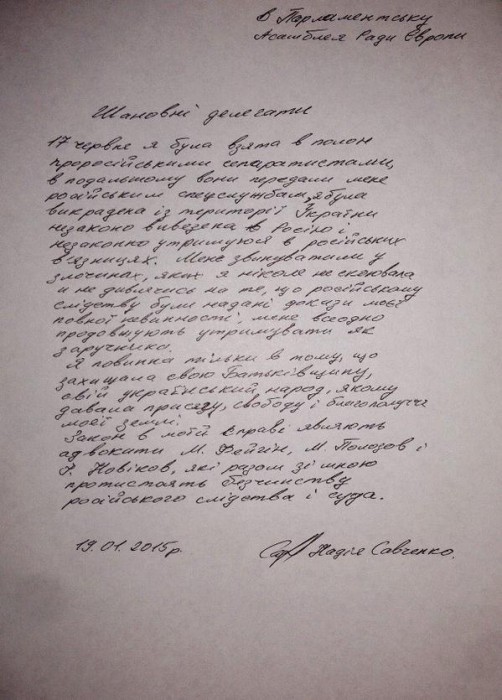 В Парламентську
Асамблея Ради Європи
Шановні делегати
17 червня я була взята в полон
проросійськими сепаратистами,
в подальшому вони передали мене
російським спецслужбам, я була
викрадена із території України
незаконо вивезена в Росію і
незаконно утримуюся в російських
в'язницях. Мене звинуватили у
злочинах, яких я ніколи не скоювала
и не дивлячись на те, що російському
слідству були надані докази моєї
повної невинності, мене всеодно
продовжують утримувати як
заручника.
Я повинна тільки в тому, що
захищала свою Батьківщину,
свій український народ, якому
давала присягу, свободу і благополуччя
моєї землі.
Закон в моїй справі являють
адвокати М. Фейгін, М. Полозов і
І. Новіков, які разом зі мною
протистоять безчинству
російського слідства і суда.
19.01.2015р. Сав Надія Савченко.